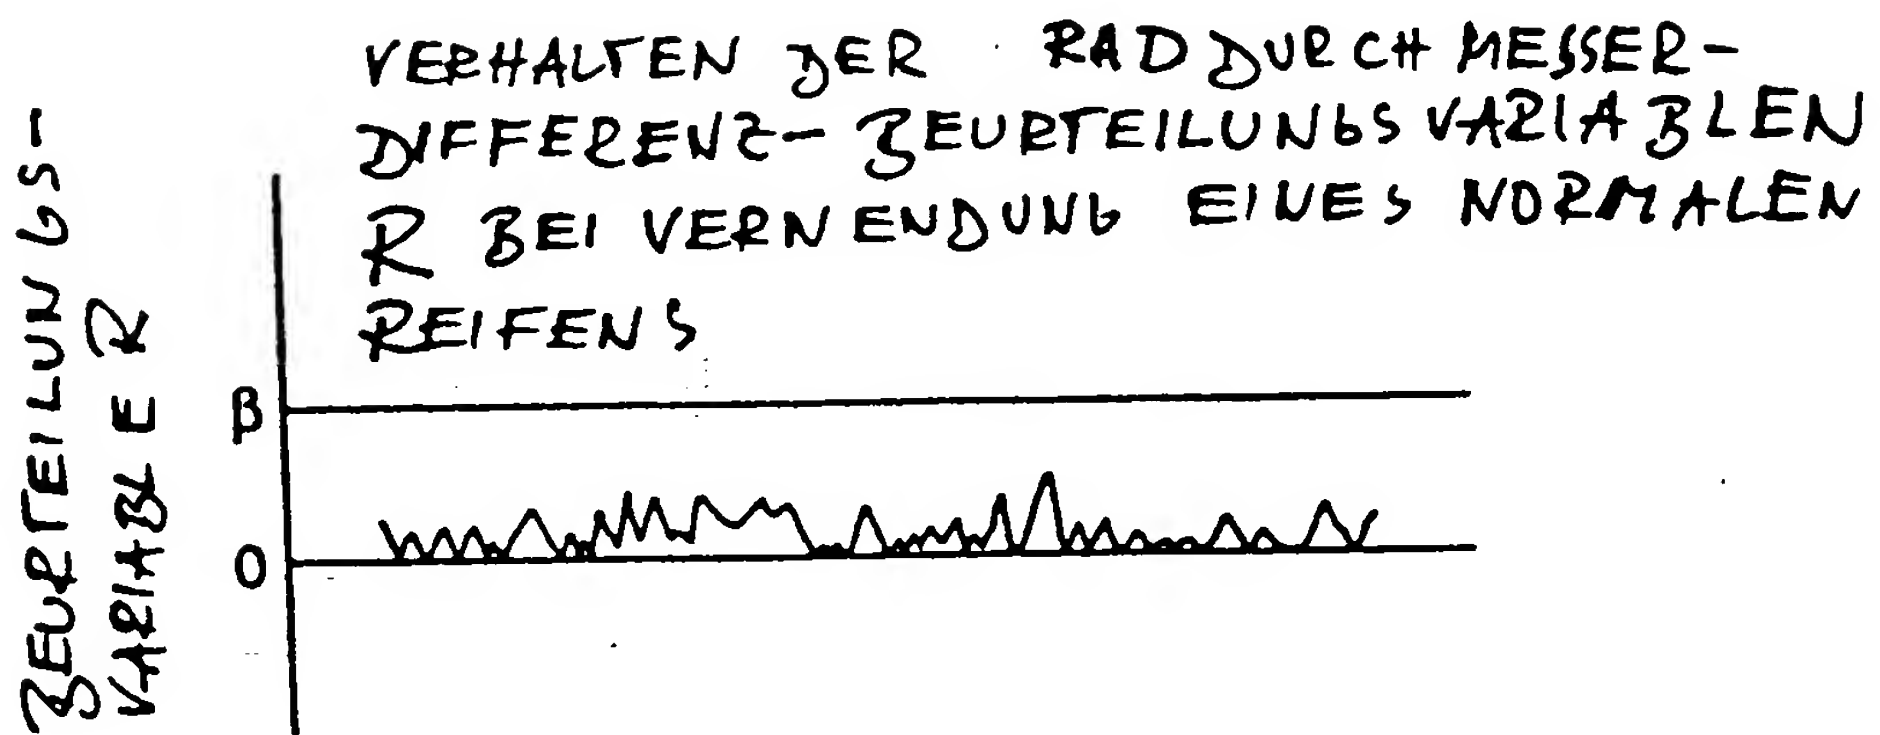 VERHALTEN DER RADDURCHMESSER-
DIFFERENZ-BEURTEILUNGSVARIABLEN
R BEI VERWENDUNG EINES NORMALEN
REIFENS
BEURTEILUNGS-
VARIABLE R
β
0